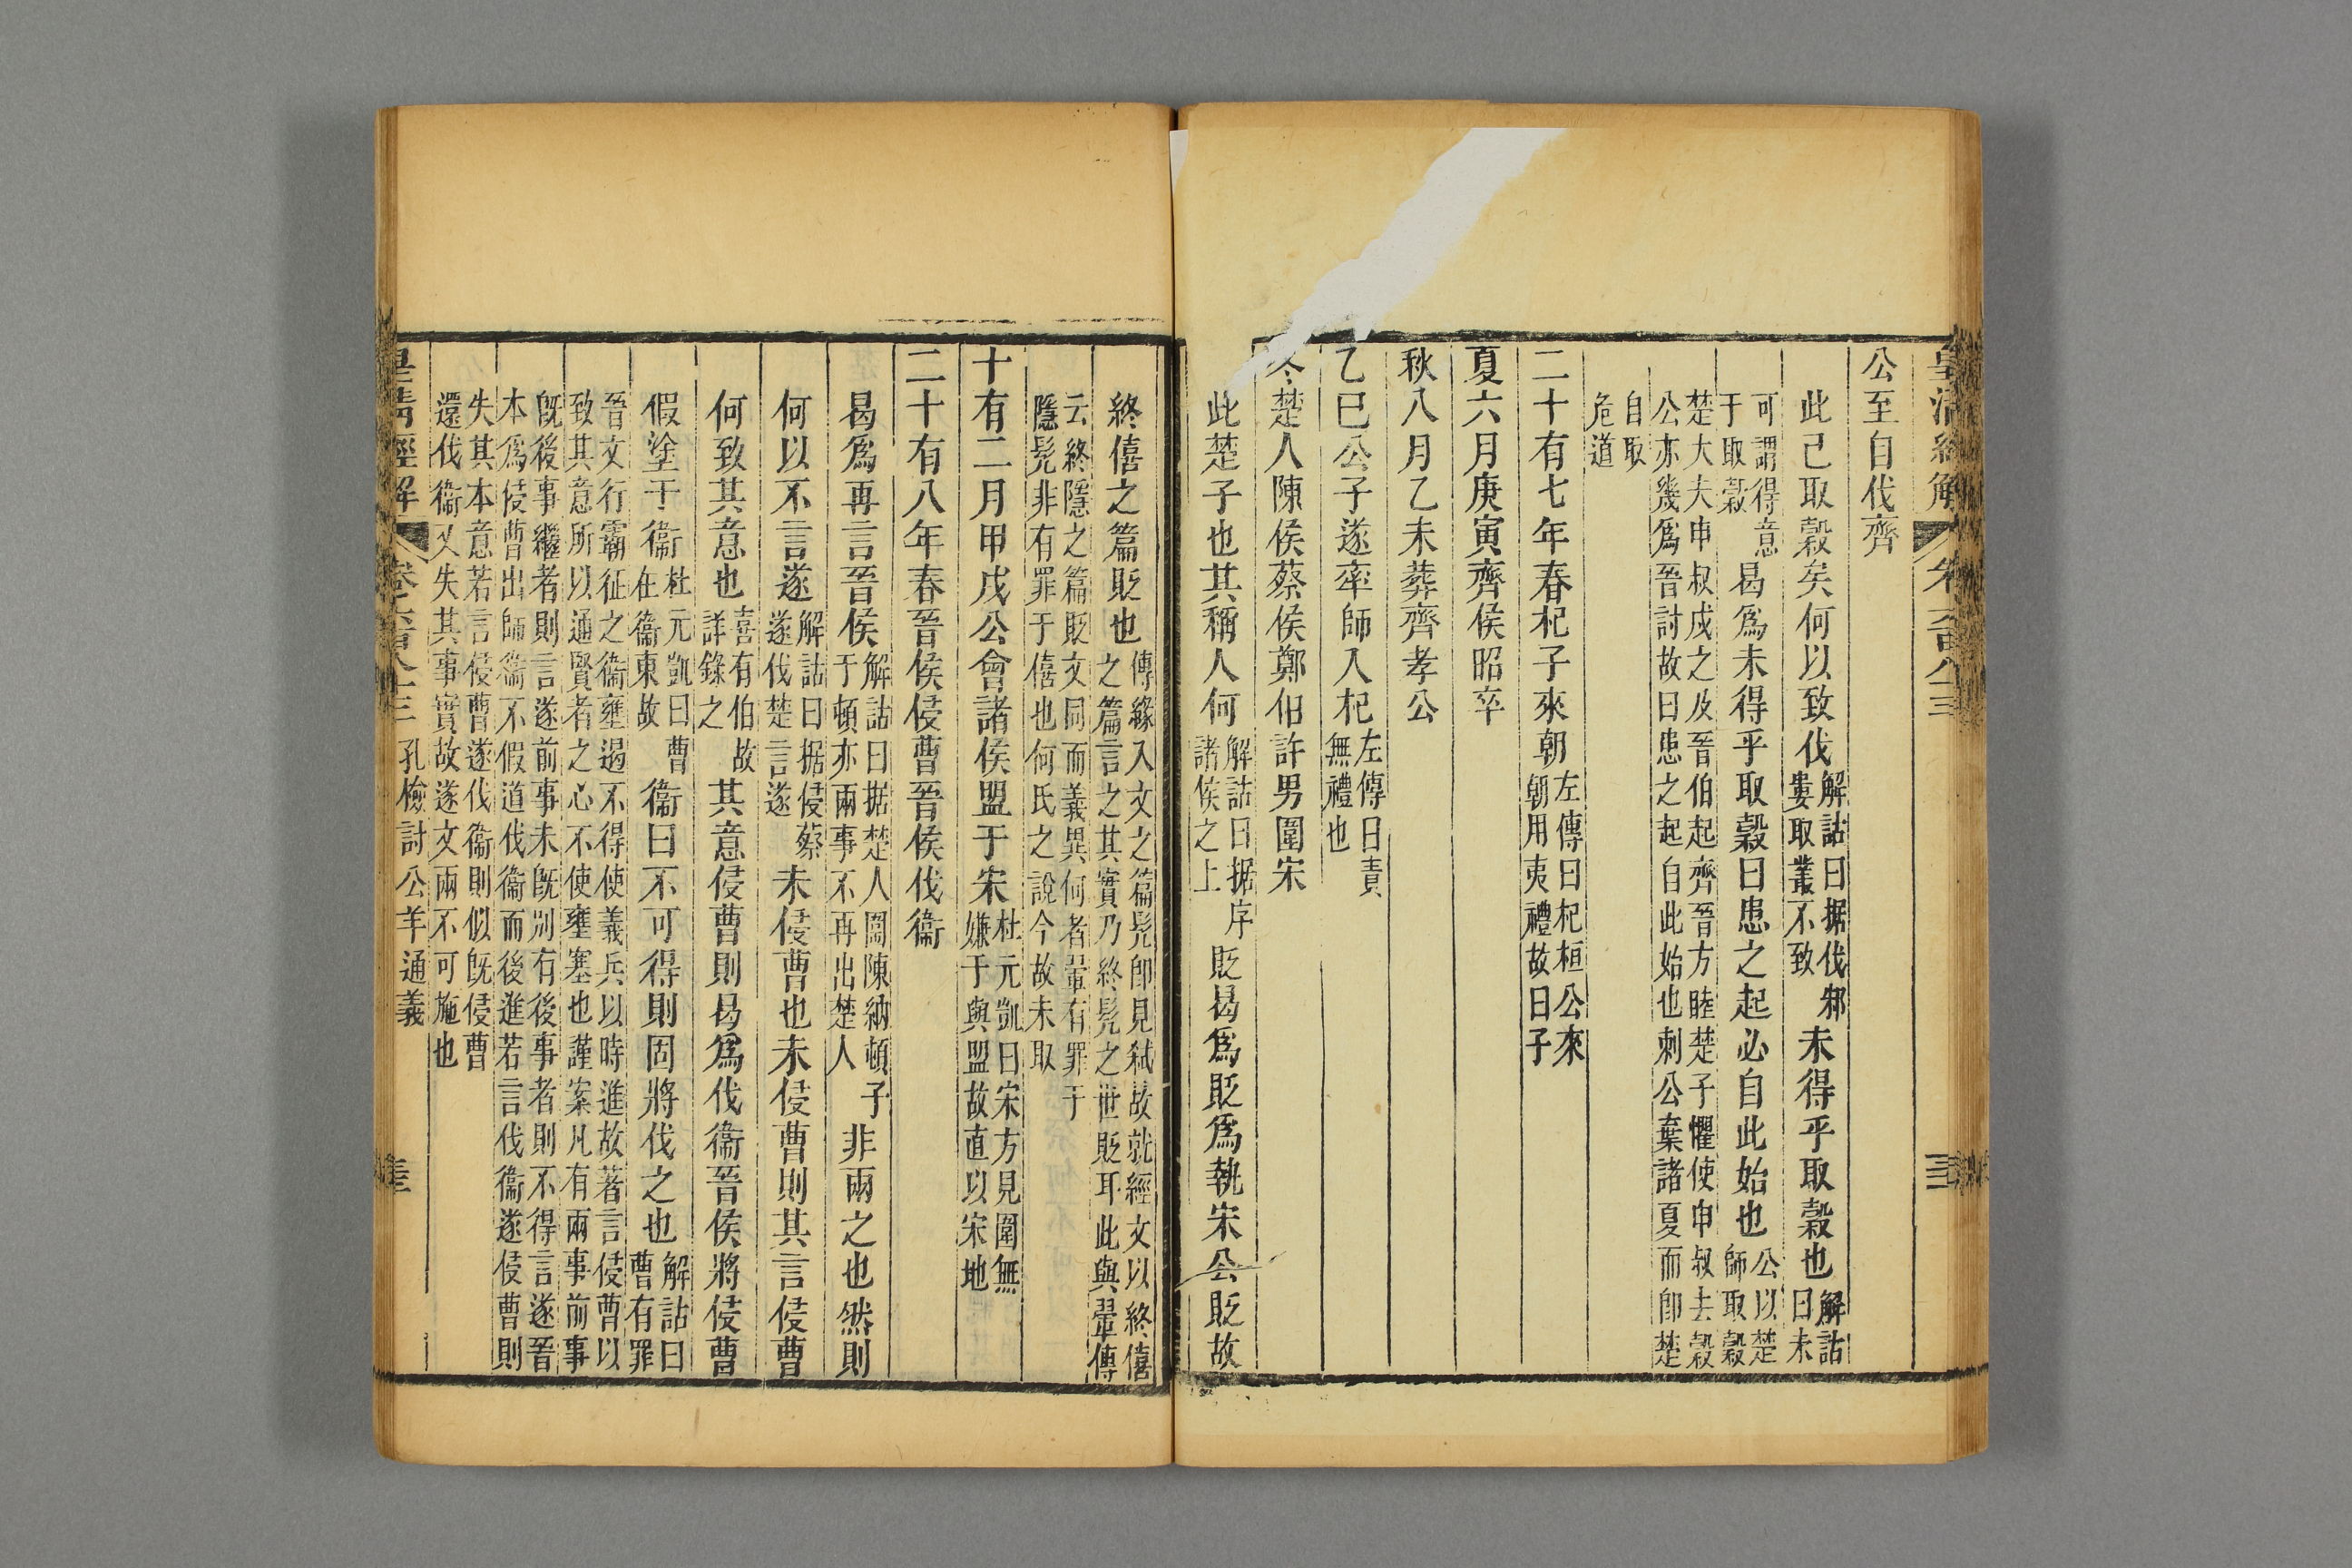 皇清經解 卷六百八十三
公至自伐齊
此已取穀矣何以致伐解詁曰据伐邾婁取叢不致未得乎取穀也解詁曰未
可謂得意于取穀曷爲未得乎取穀曰患之起必自此始也公以楚師取穀
楚大夫申叔戍之及晉伯起齊晉方睦楚子懼使申叔去穀
公亦幾爲晉討故曰患之起自此始也刺公棄諸夏而卽楚
自取
危道
二十有七年春杞子來朝左傳曰杞桓公來朝用夷禮故曰子
夏六月庚寅齊侯昭卒
秋八月乙未葬齊孝公
乙巳公子遂率師入杞左傳曰責無禮也
冬楚人陳侯蔡侯鄭伯許男圍宋
此楚子也其稱人何解詁曰据序諸侯之上貶曷爲貶爲執宋公貶故
終僖之篇貶也傳緣入文之篇髡卽見弑故就經文以終僖之篇言之其實乃終髡之世貶耳此與翬傳
云終隱之篇貶文同而義異何者翬有罪于
隱髡非有罪于僖也何氏之說今故未取
十有二月甲戌公會諸侯盟于宋杜元凱曰宋方見圍無嫌于與盟故直以宋地
二十有八年春晉侯侵曹晉侯伐衞
曷爲再言晉侯解詁曰据楚人圍陳納頓子于頓亦兩事不再出楚人非兩之也然則
何以不言遂解詁曰据侵蔡遂伐楚言遂未侵曹也未侵曹則其言侵曹
何致其意也喜有伯故詳錄之其意侵曹則曷爲伐衞晉侯將侵曹
假塗于衞杜元凱曰曹在衞東故衞曰不可得則固將伐之也解詁曰曹有罪
晉文行霸征之衞壅遏不得使義兵以時進故著言侵曹以
致其意所以通賢者之心不使壅塞也謹案凡有兩事前事
旣後事繼者則言遂前事未旣別有後事者則不得言遂晉
本爲侵曹出師衞不假道伐衞而後進若言伐衞遂侵曹則
失其本意若言侵曹遂伐衞則似旣侵曹
還伐衞又失其事實故遂文兩不可施也
皇清經解 卷六百八十三 孔檢討公羊通義